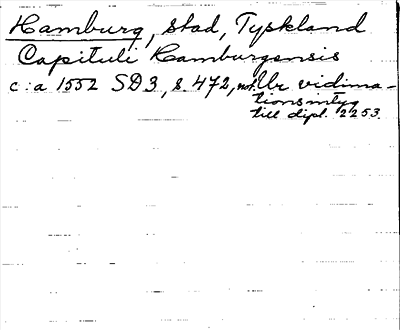 Hamburg, stad, Tyskland
Capituli Hamburgensis
c:a 1552 SD3, s. 472, not. Ur vidima-
tionsintyg
till dipl. 2253.